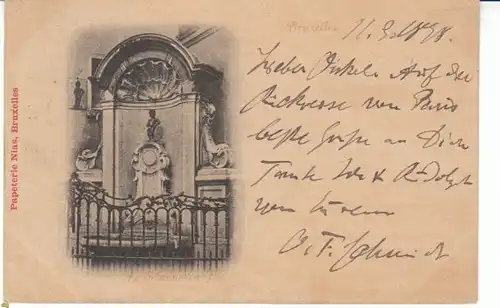 Bruxelles 11.3.1898.
Lieber Onkel. Auf der
Rückreise von Paris
beste Grüße an Dich
Tante Ida & Adolph
von Eurem
Schmidt
Papeterie Nias, Bruxelles